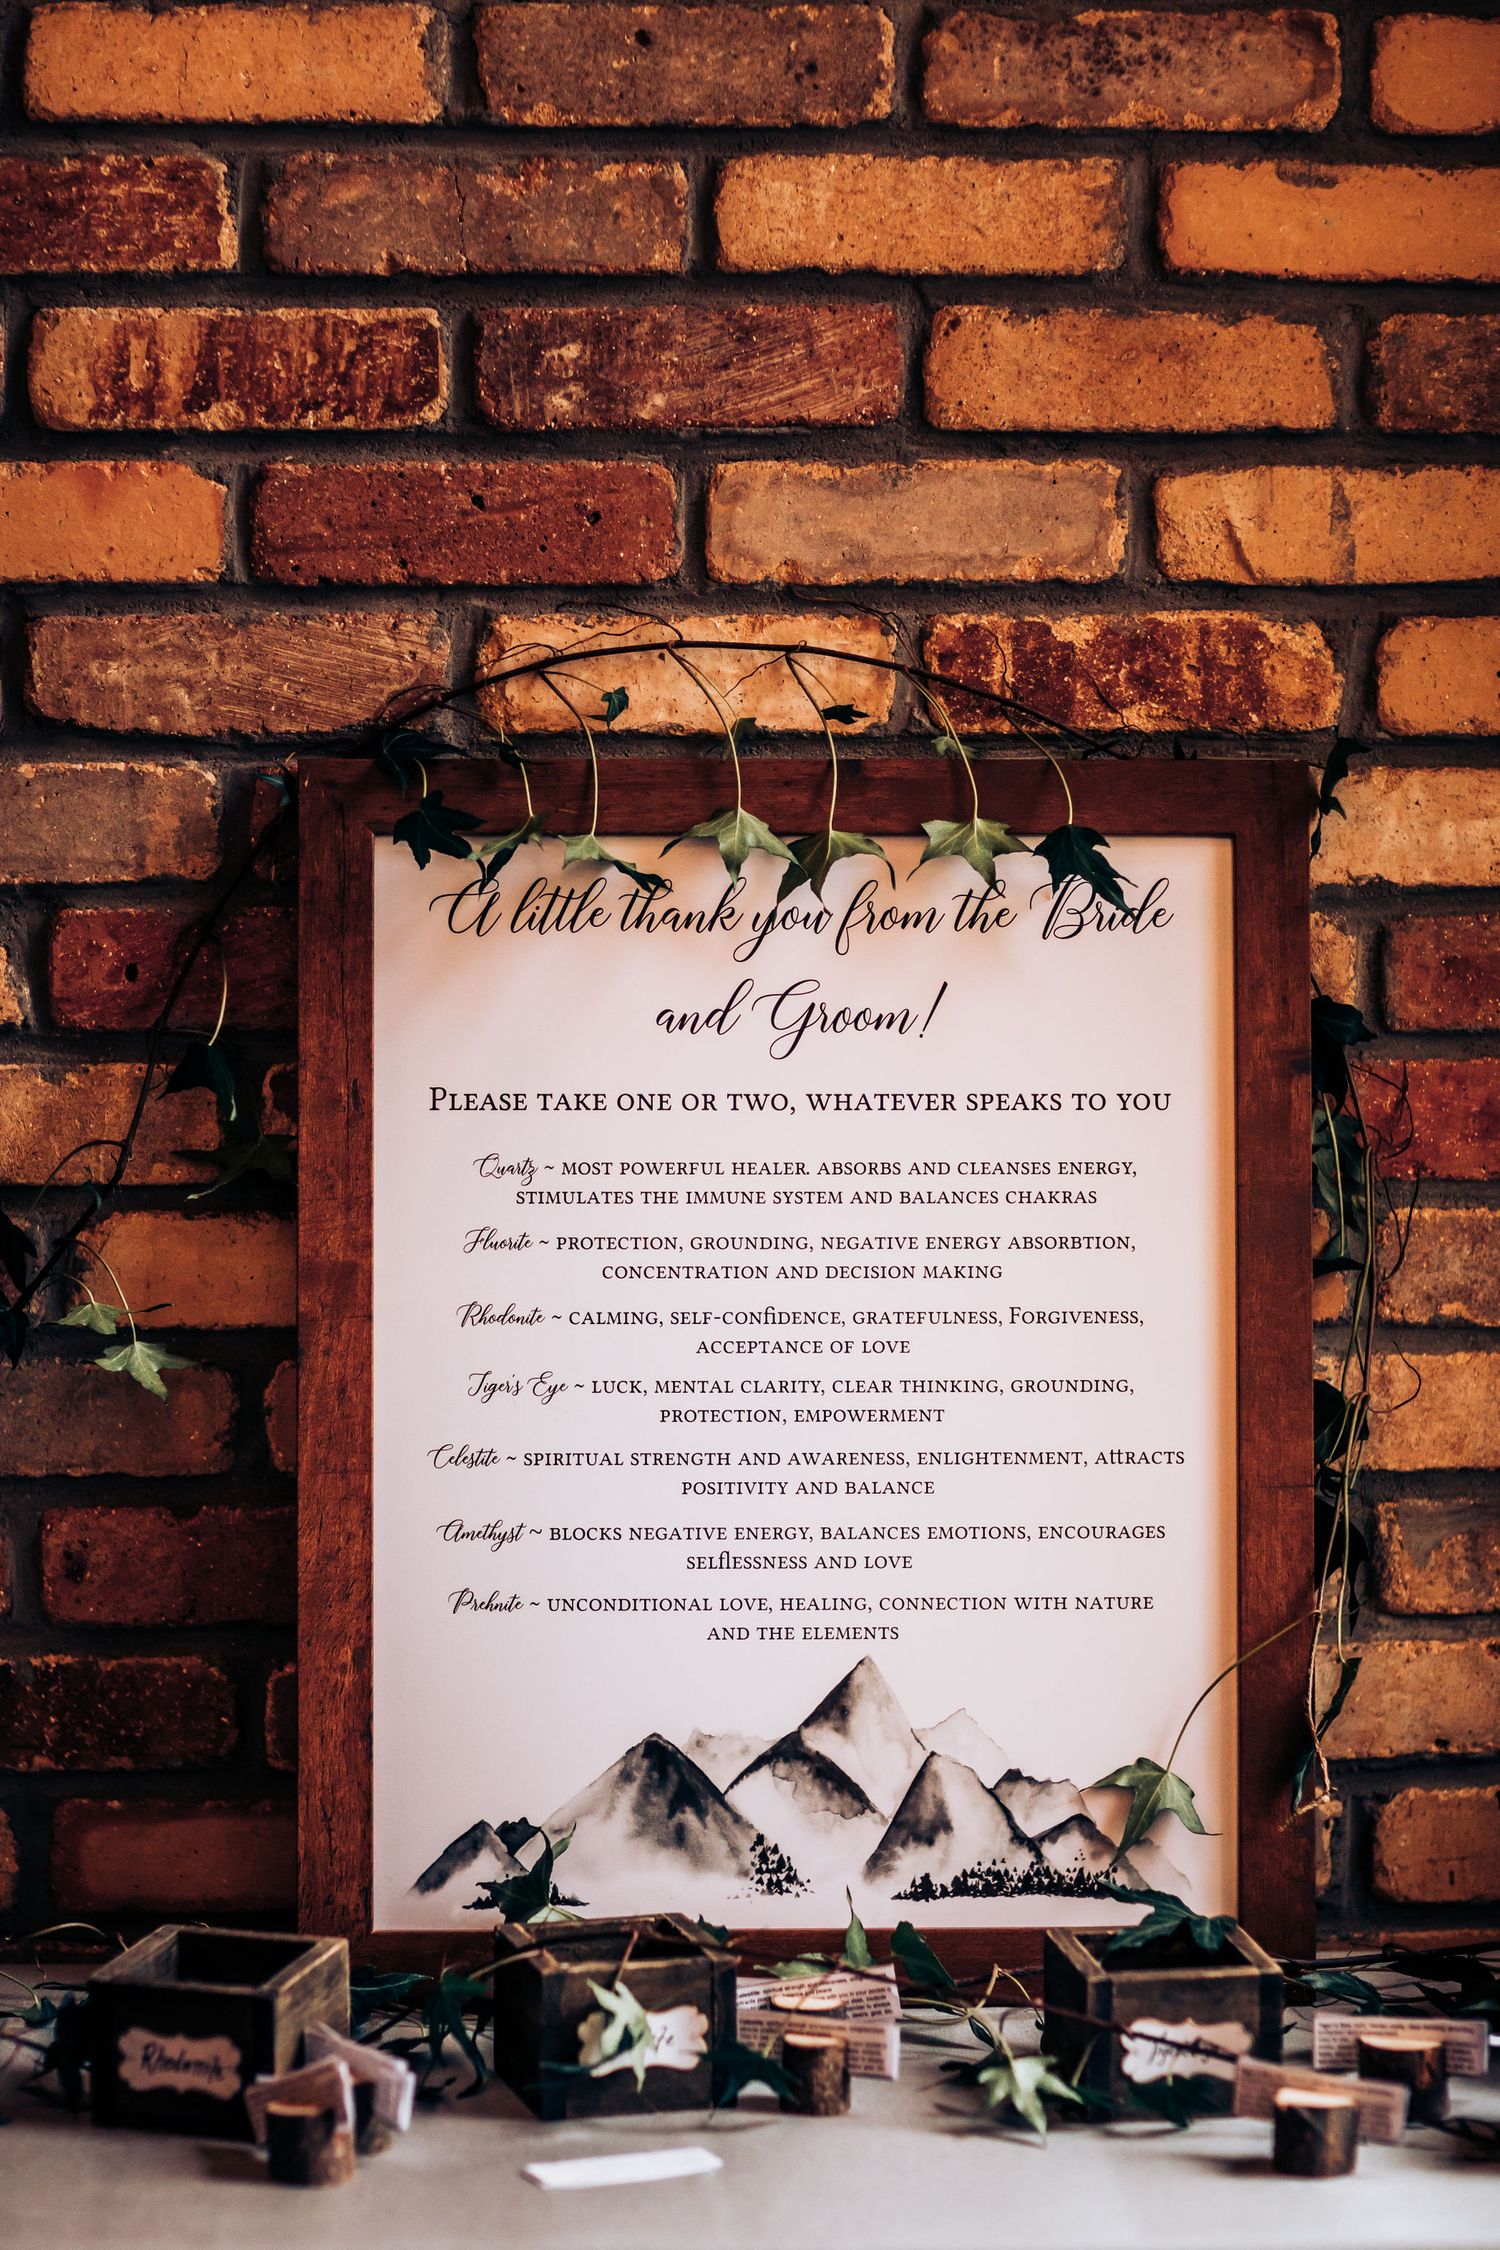 A little thank you from the Bride
and Groom!
Please take one or two, whatever speaks to you
Quartz ~ most powerful healer. absorbs and cleanses energy,
stimulates the immune system and balances chakras
Fluorite ~ protection, grounding, negative energy absorbtion,
concentration and decision making
Rhodonite ~ calming, self-confidence, gratefulness, Forgiveness,
acceptance of love
Tiger's Eye ~ luck, mental clarity, clear thinking, grounding,
protection, empowerment
Celestite ~ spiritual strength and awareness, enlightenment, attracts
positivity and balance
Amethyst ~ blocks negative energy, balances emotions, encourages
selflessness and love
Prehnite ~ unconditional love, healing, connection with nature
and the elements
Rhodonite